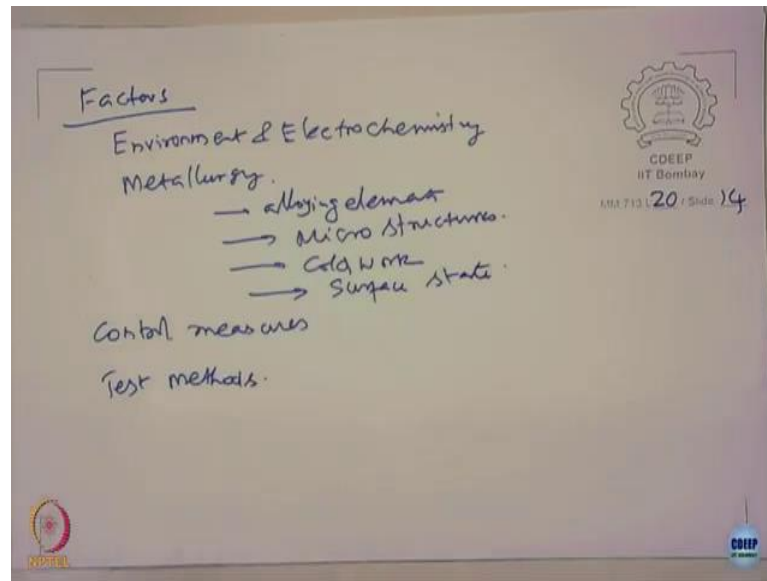 Factors
Environment & Electrochemistry
Metallurgy.
→ alloying element
→ Micro structures.
→ Cold work
→ Surface state.
Control measures
Test methods.
CDEEP
IIT Bombay
MM 713 L 20 / Slide 14
NPTEL
CDEEP
IIT BOMBAY